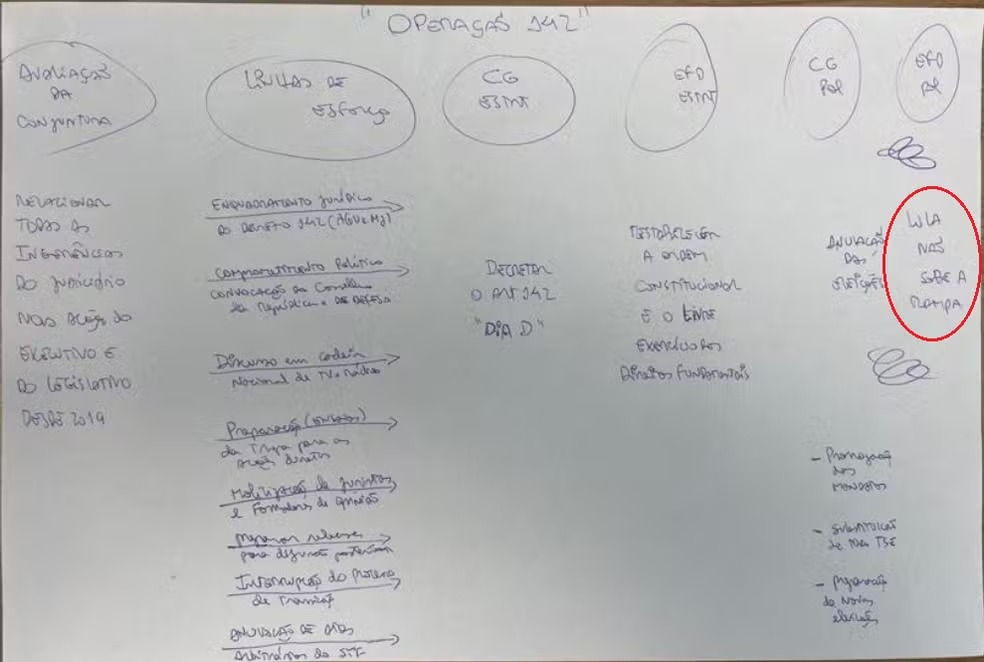 "OPERAÇÃO 142"
AVALIAÇÃO
DA
CONJUNTURA
LINHAS DE
ESFORÇO
CG
ESTRT
EFD
ESTRT
CG
POL
EFD
POL
RELACIONAR
TODAS AS
INTERFERÊNCIAS
DO JUDICIÁRIO
NAS AÇÕES DO
EXECUTIVO E
DO LEGISLATIVO
DESDE 2019
ENQUADRAMENTO Jurídico
DO DECRETO 142 (AGU e MJ)
Comprometimento Político
CONVOCAÇÃO do Conselho
da República e DE DEFESA
Discurso em cadeia
Nacional de TV e Rádio
Preparação
da Tropa para as
ações diretas
Mobilização de juristas
e Formadores de opinião
para
Interrupção do Processo
de Transição
ANULAÇÃO DE ATOS
Arbitrários do STF
DECRETAR
O ART 142
"DIA D"
RESTABELECER
A ORDEM
CONSTITUCIONAL
E O LIVRE
EXERCÍCIO DOS
DIREITOS FUNDAMENTAIS
ANULAÇÃO
DAS
ELEIÇÕES
LULA
NÃO
SOBE A
RAMPA
- Prorrogação
dos
MANDATOS
- SUBSTITUIÇÃO
de TODO TSE
- Preparação
de Novas
eleições